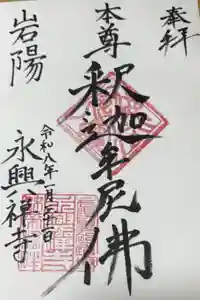 奉拝
本尊釋迦牟尼佛
岩陽
令和八年一月三十一日
永興禅寺